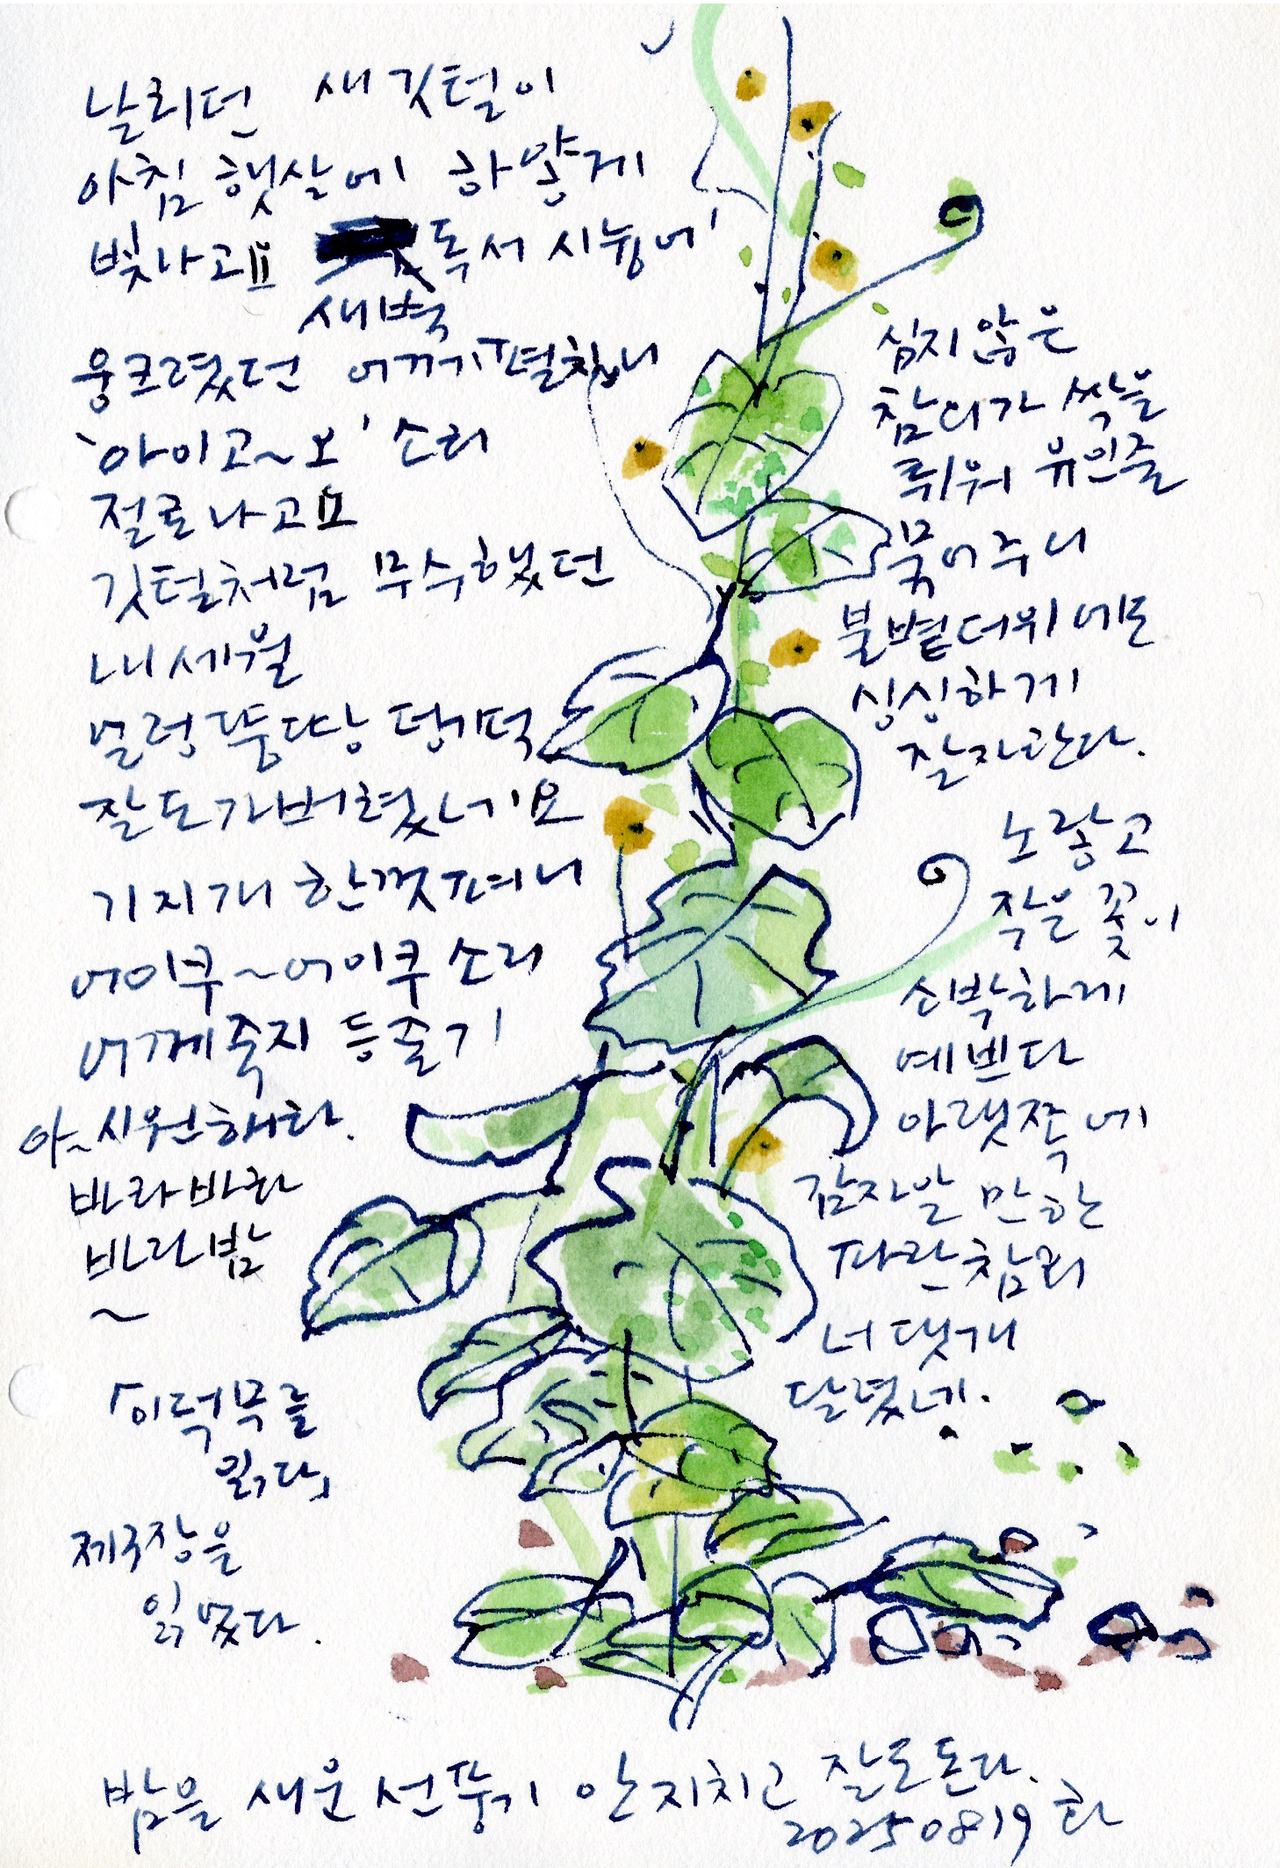 날리던 새 깃털이
아침 햇살에 하얗게
빛나고요 독서 시늉에
새벽
웅크렸던 어깨 펼치니
'아이고~오' 소리
절로 나고요
깃털처럼 무수했던
내 세월
얼렁뚱땅 덩기덕
잘도 가버렸네'요
기지개 한껏 펴니
어이쿠~어이쿠 소리
어깨죽지 등줄기
아~시원해라.
바라바라
바라밤
~
「이덕무를
읽다」
제9장을
읽었다.
심지 않은
참외가 싹을
틔워 유인줄
묶어주니
불볕더위에도
싱싱하게
잘 자란다.
노랗고
작은 꽃이
소박하게
예쁘다
아랫쪽에
감자알 만한
파란 참외
너댓개
달렸네.
밤을 새운 선풍기 안 지치고 잘도 돈다.
20250819 화